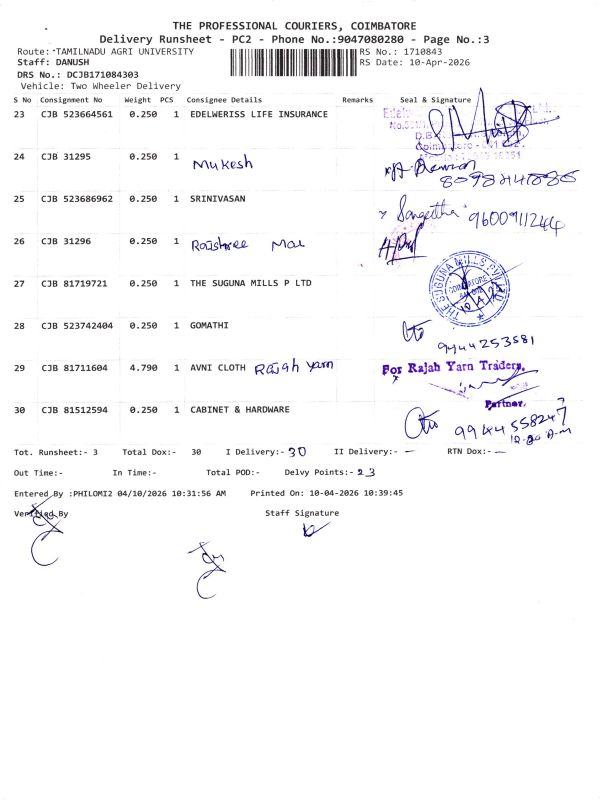 THE PROFESSIONAL COURIERS, COIMBATORE
Delivery Runsheet - PC2 - Phone No.:9047080280 - Page No.:3
Route: TAMILNADU AGRI UNIVERSITY RS No.: 1710843
Staff: DANUSH RS Date: 10-Apr-2026
DRS No.: DCJB171084303
Vehicle: Two Wheeler Delivery
S No Consignment No Weight PCS Consignee Details Remarks Seal & Signature
23 CJB 523664561 0.250 1 EDELWERISS LIFE INSURANCE
24 CJB 31295 0.250 1 Mukesh
25 CJB 523686962 0.250 1 SRINIVASAN Sangeetha 9600911244
26 CJB 31296 0.250 1
27 CJB 81719721 0.250 1 THE SUGUNA MILLS P LTD THE SUGUNA MILLS PVT LTD COIMBATORE
28 CJB 523742404 0.250 1 GOMATHI 9944253581
29 CJB 81711604 4.790 1 AVNI CLOTH Rajah yarn For Rajah Yarn Traders,
Partner.
30 CJB 81512594 0.250 1 CABINET & HARDWARE 9944558247
Tot. Runsheet:- 3 Total Dox:- 30 I Delivery:- 30 II Delivery:- — RTN Dox:- —
Out Time:- In Time:- Total POD:- Delvy Points:- 23
Entered By :PHILOMI2 04/10/2026 10:31:56 AM Printed On: 10-04-2026 10:39:45
Verified By Staff Signature